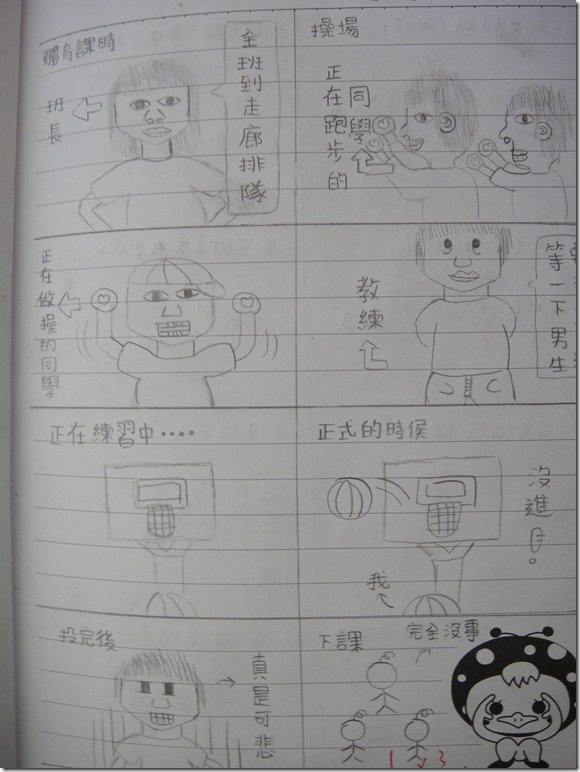 體育課時
班長
全班到走廊排隊
操場
正在跑步的
同學
正在做操的同學
教練
等一下男生
正在練習中....
正式的時候
沒進
我
投完後
真是可悲
下課
完全沒事